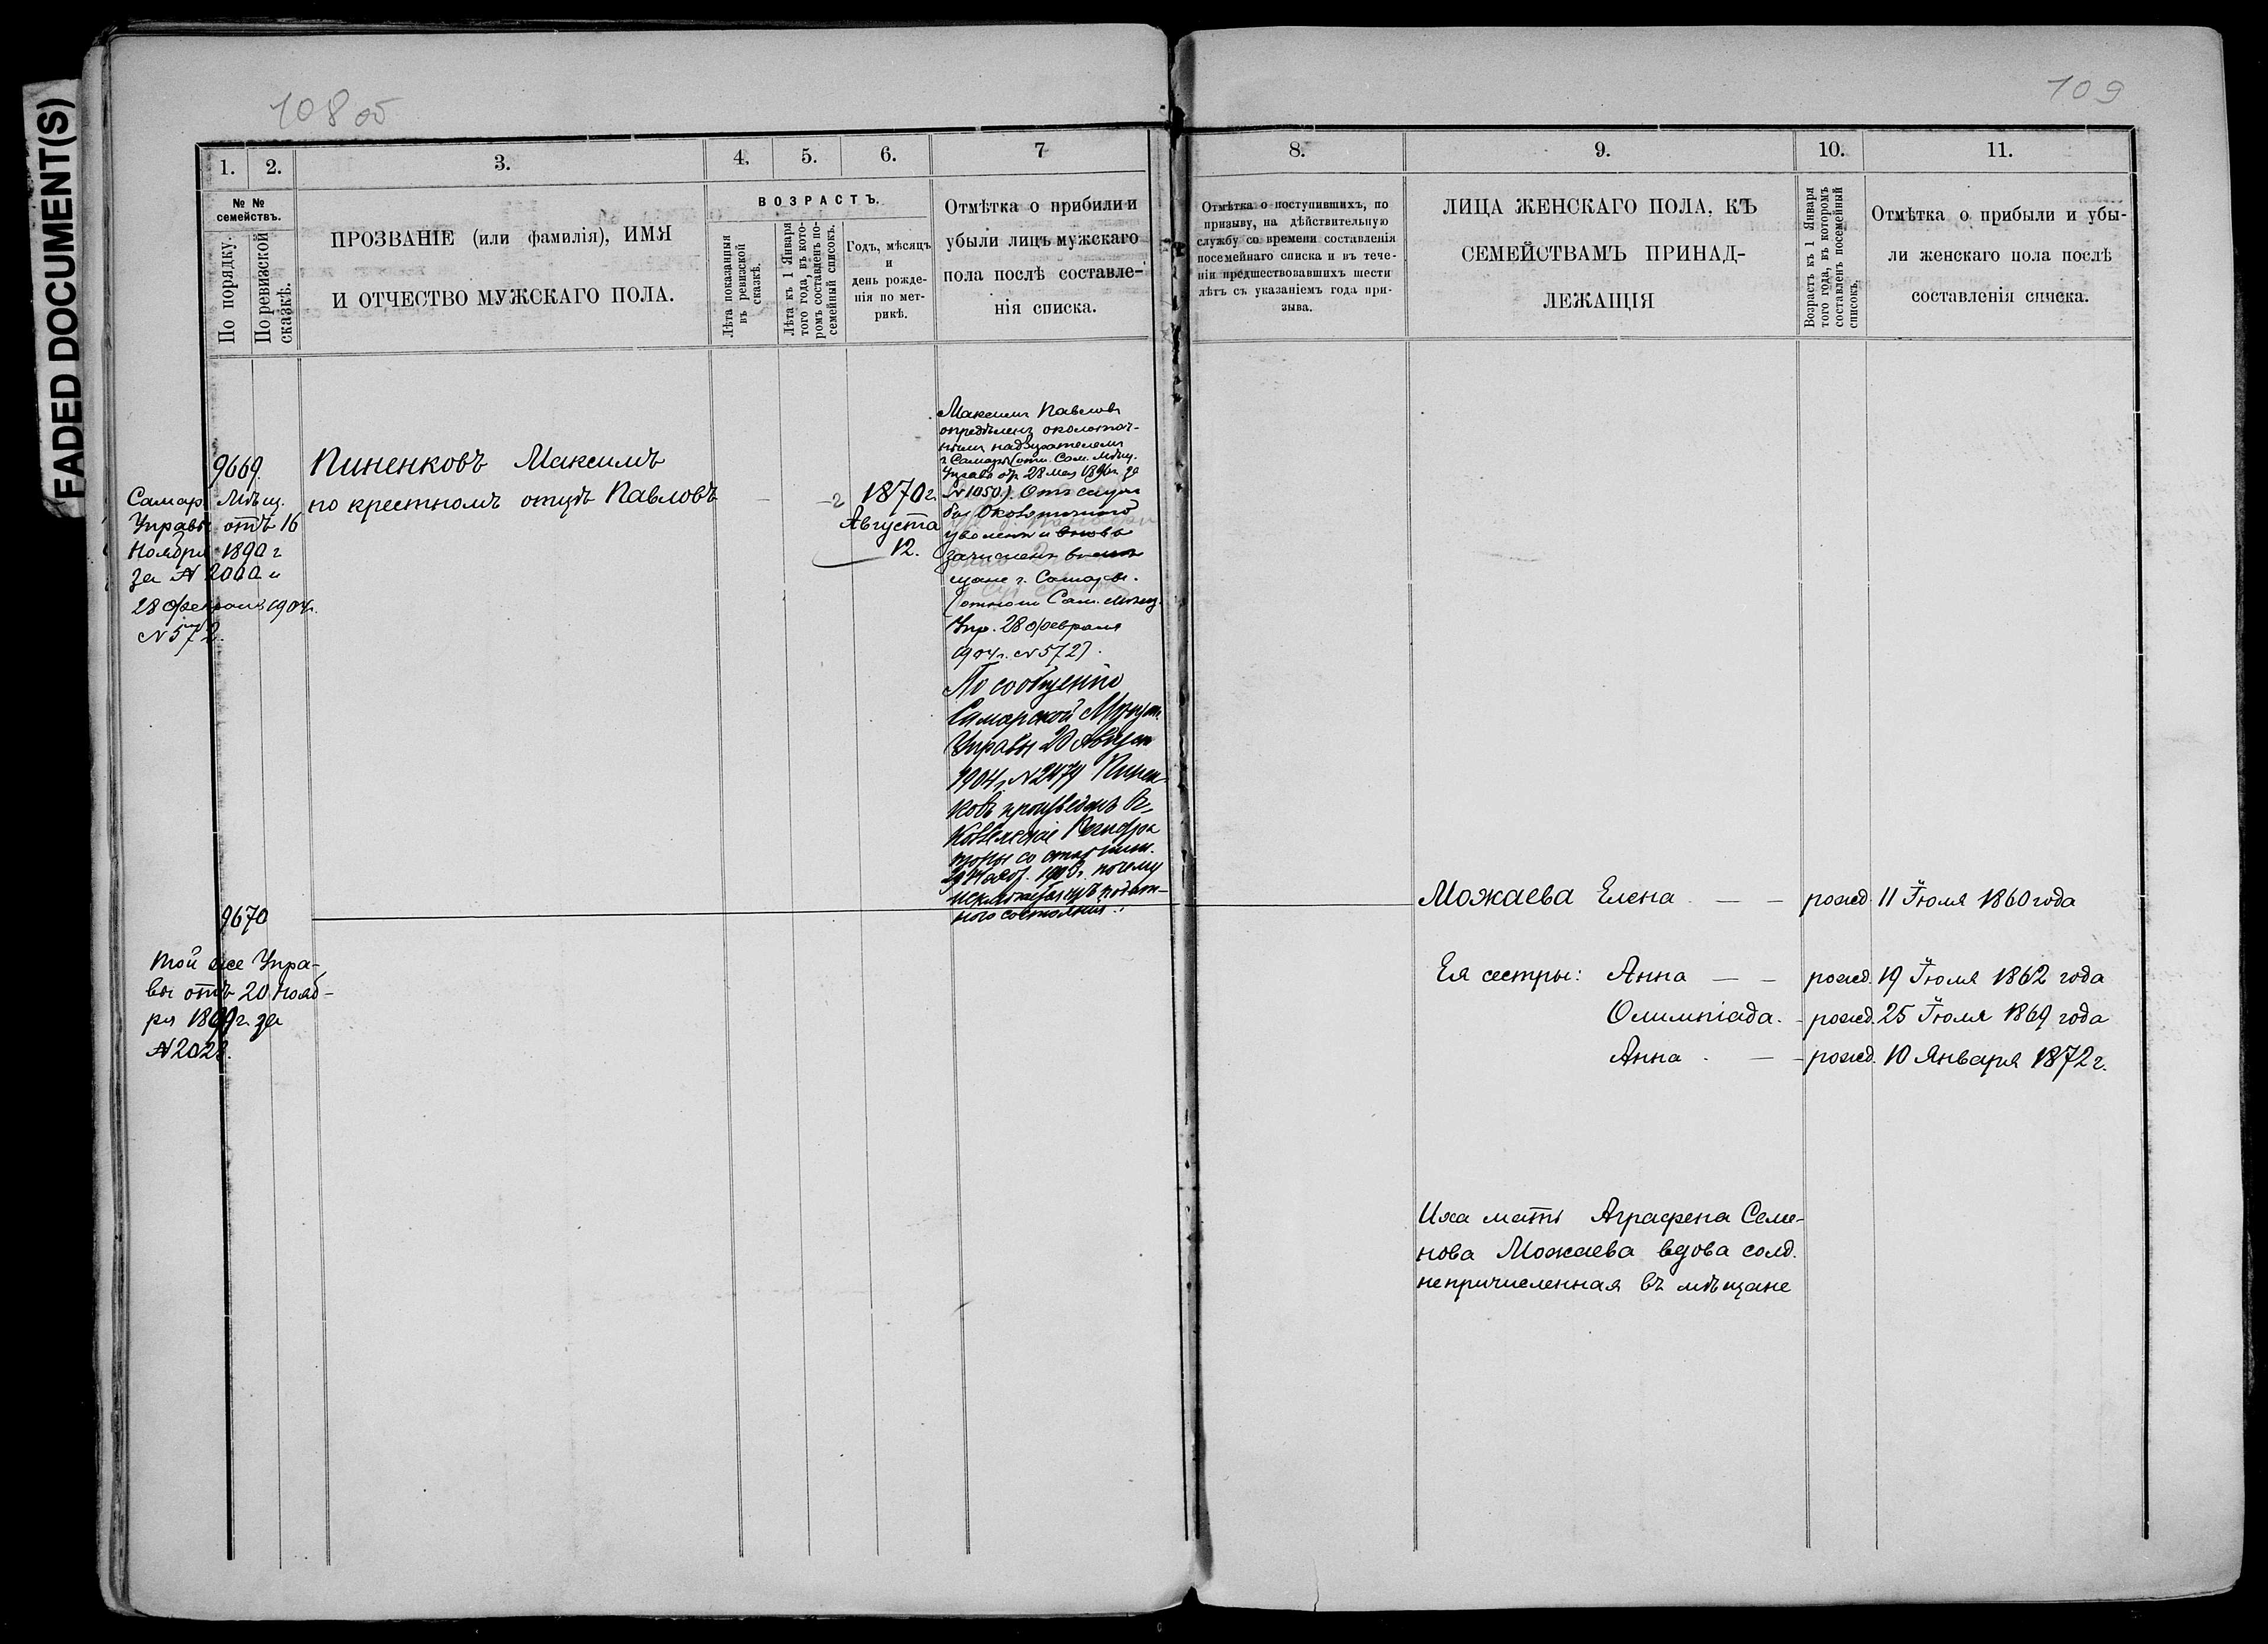 FADED DOCUMENT(S)
108 об
109
1.
2.
3.
4.
5.
6.
7
8.
9.
10.
11.
№ №
семействъ.
По порядку.
По ревизской
сказкѣ.
ПРОЗВАНІЕ (или фамилія), ИМЯ
И ОТЧЕСТВО МУЖСКАГО ПОЛА.
ВОЗРАСТЪ.
Лѣта показанныя
въ ревизской
сказкѣ.
Лѣта къ 1 Января
того года, въ кото-
ромъ составленъ по-
семейный списокъ.
Годъ, мѣсяцъ
и
день рожде-
нія по мет-
рикѣ.
Отмѣтка о прибыли и
убыли лицъ мужскаго
пола послѣ составле-
нія списка.
Отмѣтка о поступившихъ, по
призыву, на дѣйствительную
службу со времени составленія
посемейнаго списка и въ тече-
ніи предшествовавшихъ шести
лѣтъ съ указаніемъ года при-
зыва.
ЛИЦА ЖЕНСКАГО ПОЛА, КЪ
СЕМЕЙСТВАМЪ ПРИНАД-
ЛЕЖАЩІЯ
Возрастъ къ 1 Января
того года, въ которомъ
составленъ посемейный
списокъ.
Отмѣтка о прибыли и убы-
ли женскаго пола послѣ
составленія списка.
9669.
Самар. Мѣщ.
Управы отъ 16
Ноября 1890 г
за № 2000 и
28 февраля 1904г.
№ 572.
Пиненковъ Максимъ
по крестномъ отцѣ Павловъ
1870 г.
Августа
12.
Максимъ Павловъ
опредѣленъ околоточ-
нымъ надзирателемъ
г. Самары (отн. Сам. Мѣщ.
Управы от 28 мая 1896г. за
№ 1050). Отъ служ
бы Околоточного
уволенъ и вновь
зачисленъ въ мѣ
щане г. Самары.
(отнош Сам. Мѣщ.
Упр. 28 февраля
1904г. № 572).
По сообщенію
Самарской Мѣщан.
Управы 20 Августа
1904г. № 2479 Пинен-
ковъ произведенъ въ
Коллежскіе Регистра
торы со старшин.
1903г. почему
исключается изъ подат-
ного состоянія.
9670
Той же Упра-
вы отъ 20 Нояб-
ря 1890г. за
№ 2028.
Можаева Елена — — рожд. 11 Іюля 1860 года
Ея сестры: Анна — — рожд. 19 Іюля 1862 года
Олимпіада. - рожд. 25 Іюля 1869 года
Анна . — - рожд. 10 Января 1872 г.
Ихъ мать Аграфена Семе-
нова Можаева вдова солд.
непричисленная въ мѣщане